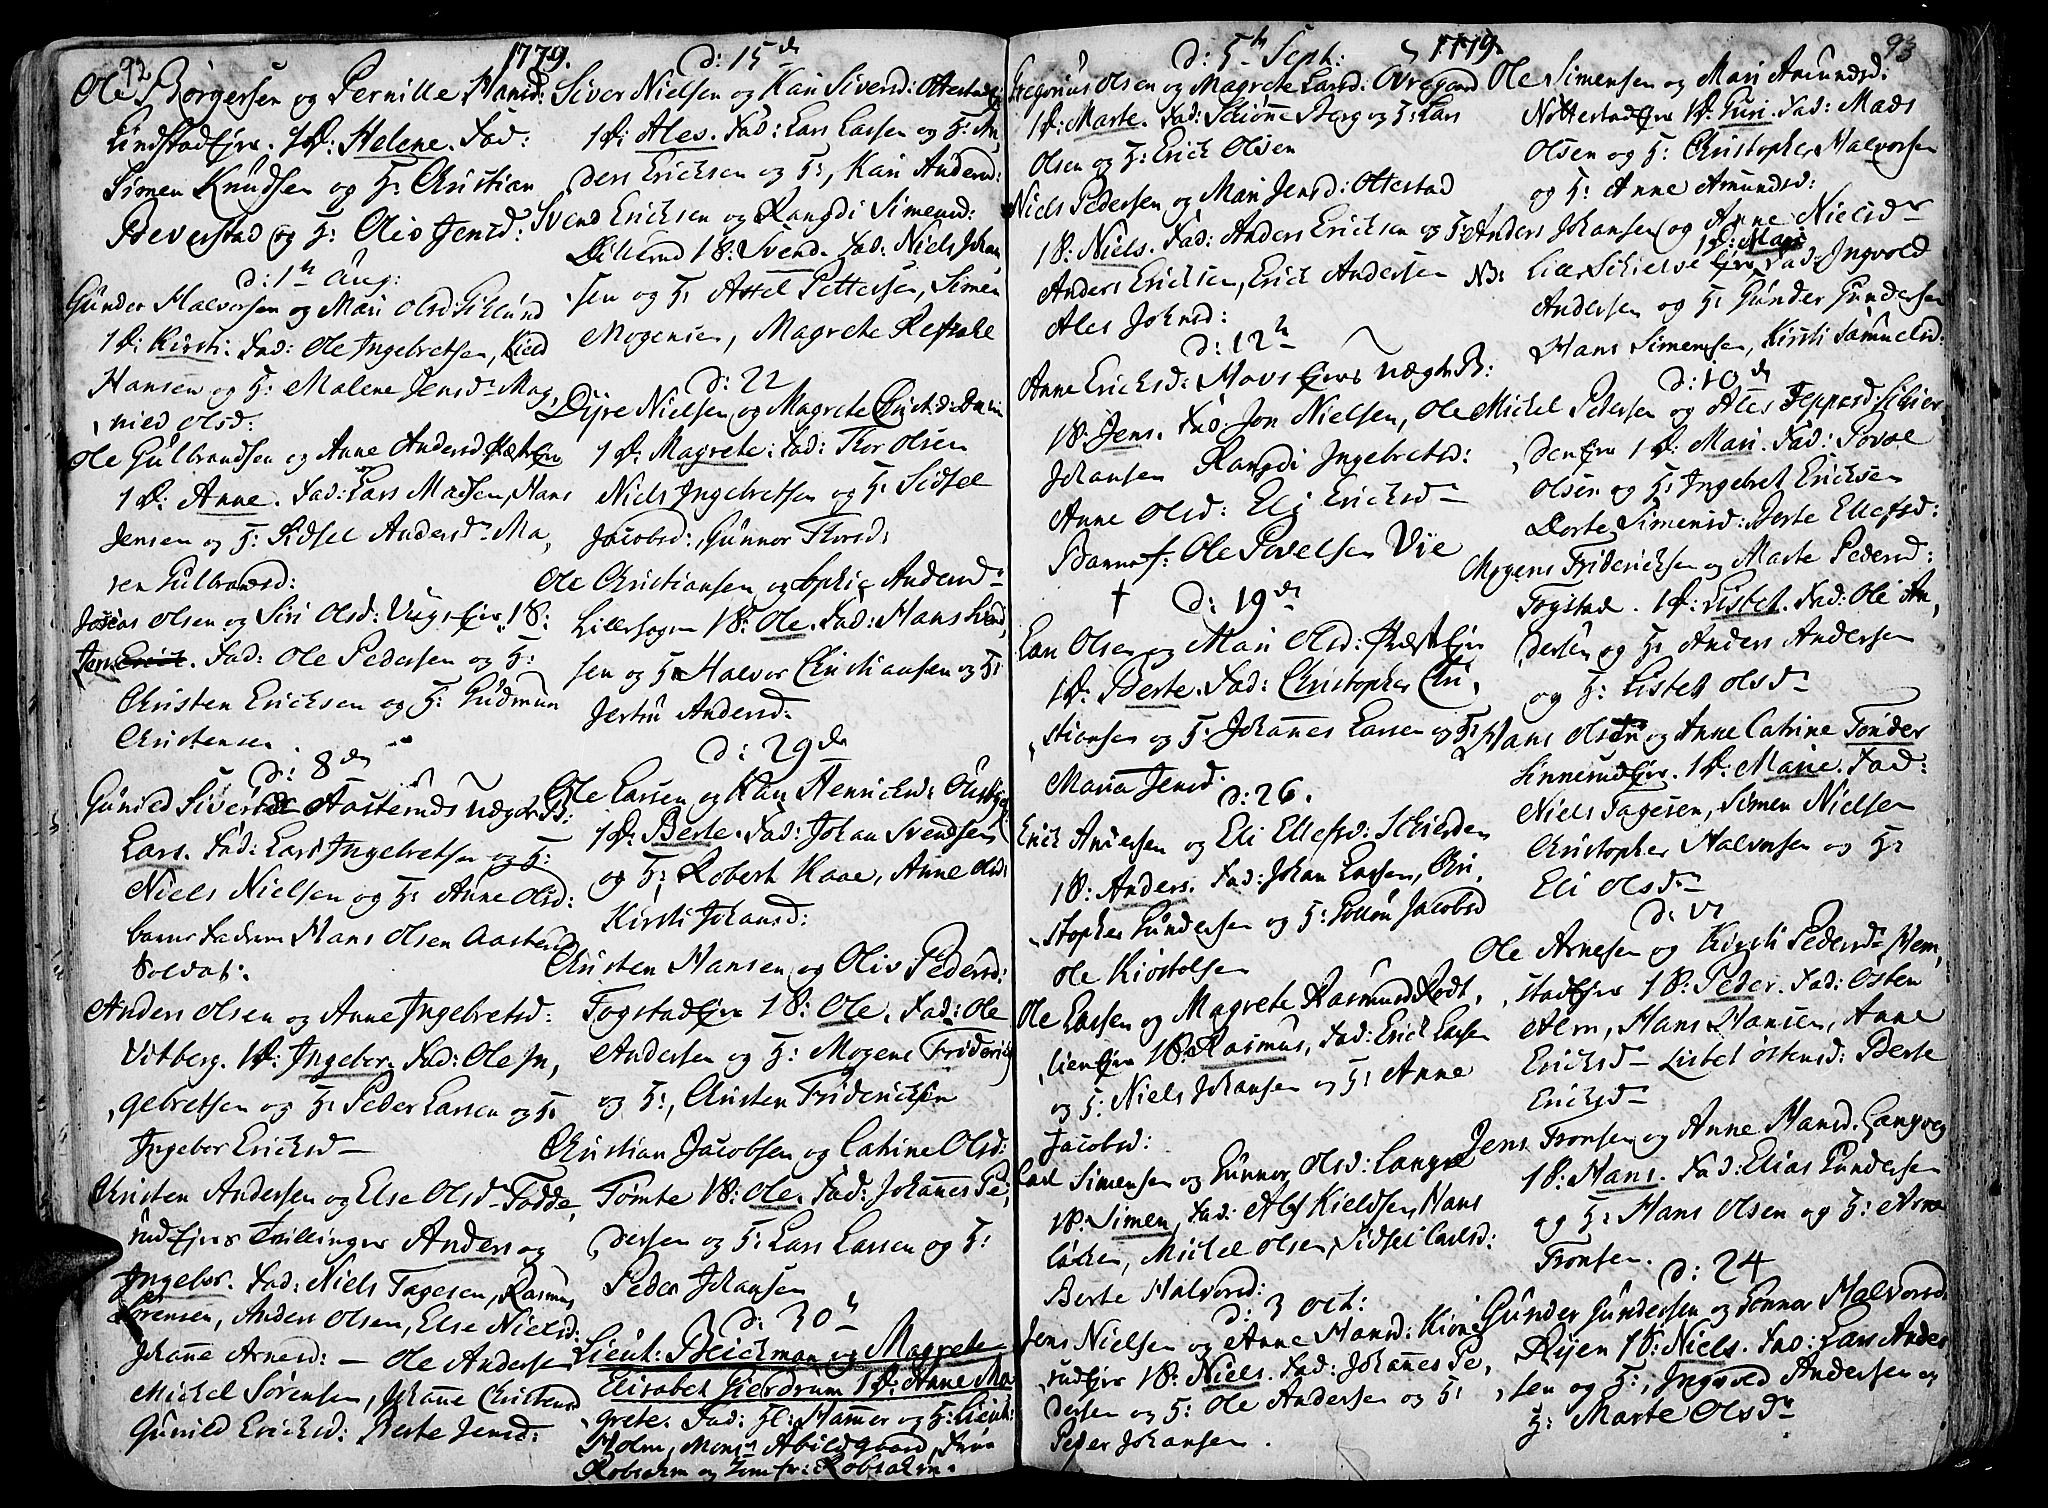 92
1779.
Ole Børgersen og Pernille Hansd:
Lindstad Ejer. 1 P: Helene. Fad:
Simen Knudsen og H: Christian
Beverstad og H: Oliv Jensd:
d: 1te Aug:
Gunder Halvorsen og Mari Olsd:
1 P: Kirsti. Fad: Ole Ingebretsen,
Hansen og H: Malene Jensd Mag,
nild Olsd:
Ole Gulbrandsen og Anne Andersd
1 P: Anne. Fad: Lars Madsen, Hans
Jensen og H: Sidsel Andersd Ma,
ren Gulbransd:
Josias Olsen og Siri Olsd: Ejer 1 B:
Jens. Fad: Ole Pedersen og H:
Christen Ericksen og H: Gudmun
Christensen
d: 8de
Gunild Siversd
Lars. Fad: Lars Ingebretsen og H:
Niels Nielsen og H: Anne Olsd:
barne Fadren Hans Olsen
Soldat.
Anders Olsen og Anne Ingebretsd:
Vitberg. 1 P: Ingebor. Fad: Ole In,
gebretsen og H: Peder Larsen og H:
Ingebor Ericksd
Christen Andersen og Else Olsd Fodde,
rud Ejer Tvillinger Anders og
Ingebor. Fad: Niels Tagesen, Rasmus
Sørensen, Anders Olsen, Else Nielsd:
Johanne Arnesd: – Ole Andersen
Mickel Sørensen, Johanne Christensd
Gunild Ericksd: Berte Jensd:
d: 15de
Siver Nielsen og Kari Siversd: Ottestad
1 P: Ales. Fad: Lars Larsen og H: An,
ders Ericksen og H:, Kari Andersd:
Svend Ericksen og Rangdi Simensd:
1 B: Svend. Fad: Niels Johan
sen og H: Axsel Pettersen, Simen
Mogensen, Magrete Refsale
d: 22
Dyre Nielsen og Magrete
1 P: Magrete: Fad: Thor Olsen
Niels Ingebretsen og H: Sidsel
Jacobsd:, Gunnor Thorsd:
Ole Christiansen og Sophie Andersd
1 B: Ole. Fad: Hans
sen og H: Halvor Christiansen og H:
Andersd:
d: 29de
Ole Larsen og Kari Henricksd:
1 P: Berte. Fad: Johan Svendsen
og H:, Robert Kaae, Anne Olsd:
Kirsti Johansd:
Christen Hansen og Oliv Pedersd:
Fogstad Ejer 1 B: Ole. Fad: Ole
Andersen og H: Mogens Friderich,
og H:, Christen Friderichsen
Christian Jacobsen og Catrine Olsd:
Tømte 1 B: Ole. Fad: Johannes Pe,
dersen og H: Lars Larsen og H:
Peder Johansen
d: 30
Lieut: Bleichman og Magrete
Elisabet Gierdrum 1 P: Anne Ma
grete. Fad: Hl: Hammer og H: Lieut:
Holm, Mons: Abildgaard, Frue
Robsahm og Jomfr: Robsahm.
93
1779
d: 5te Sept:
Gregorius Olsen og Magrete Larsd: Ovregaard
1 P: Marte. Fad: Schiønne Berg og H: Lars
Olsen og H: Erick Olsen
Niels Pedersen og Mari Jensd: Ottestad
1 B: Niels. Fad: Anders Ericksen og H:
Anders Ericksen, Erick Andersen
Ales Johnsd:
d: 12te
Anne Ericksd:
1 B: Jens. Fad Jon Nielsen, Ole
Johansen Rangdi Ingebretsd:
Anne Olsd: Eli Ericksd
Barnef: Ole Povelsen Vie
d: 19de
Lars Olsen og Mari Olsd:
1 P: Berte. Fad: Christopher Chri,
stiansen og H: Johannes Larsen og H:
Maria Jensd:
d: 26.
Erick Andersen og Eli Ellefsd: Schierden
1 B: Anders. Fad: Johan Larsen, Chri,
stopher Gundersen og H: Jacobsd
Ole Kiøstolsen
Ole Larsen og Magrete Rasmusd
lien Ejer 1 B: Rasmus, Fad: Erick Larsen
og H: Niels Johansen og H: Anne
Jacobsd:
Carl Simensen og Gunnor Olsd:
1 B: Simen, Fad: Alf Kieldsen, Hans
Mickel Olsen, Sidsel Carlsd:
Berte Halvorsd:
d: 3 Oct:
Jens Nielsen og Anne Hansd: Kione
rud Ejer 1 B: Niels. Fad: Johannes Pe,
dersen og H: Ole Andersen og H:
Peder Johansen.
Ole Simensen og Mari Amundsd:
Nottestad Ejer 1 P: Guri. Fad: Mads
Olsen og H: Christopher Halvorsen
og H: Anne Amundsd:
Anders Johansen og Anne Nielsd
1 P: Mari
NB: Lille Schielve Ejer Fad: Ingvold
Andersen og H: Gunder Gundersen
Hans Simensen, Kirsti Samuelsd:
d: 10de
Mickel Pedersen og Ales Jeppesd: Schier,
den Ejer 1 P: Mari. Fad: Povel
Olsen og H: Ingebret Ericksen
Dorte Simensd: Berte Ellefsd:
Mogens Fridericksen og Marte Pedersd:
Fogstad. 1 P: Lisbet. Fad: Ole An,
dersen og H: Anders Andersen
og H: Lisbet Olsd
Hans Olsen og Anne Catrine Tønder
Linnerud Ejer. 1 P: Marie. Fad:
Niels Tagesen, Simen Nielsen
Christopher Halvorsen og H:
Eli Olsd
d: 17
Ole Arnesen og Kirsti Pedersd Hem,
stad Ejer 1 B: Peder. Fad: Osten
Alm, Hans Hansen, Anne
Ericksd Lisbet Østensd: Berte
Ericksd
Jens Tronsen og Anne Hansd. Langveg
1 B: Hans. Fad: Elias Gundersen
og H: Hans Olsen og H: Arne
Tronsen.
d: 24
Gunder Gundersen og Gonnor Halvorsd
Ryen 1 B: Niels. Fad: Lars Ander
sen og H:, Ingvold Andersen og
H: Marte Olsd